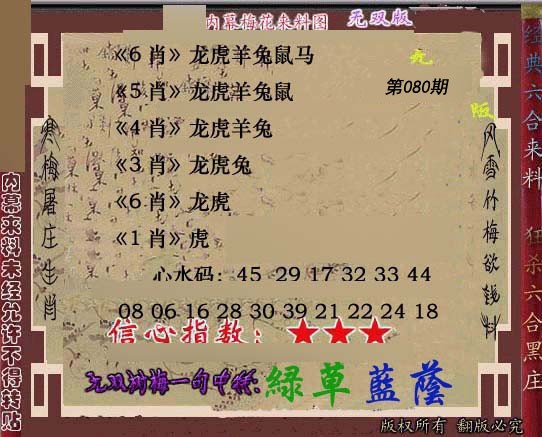 内幕梅花来料图 无双版
《6 肖》龙虎羊兔鼠马
《5 肖》龙虎羊兔鼠
第080期
《4 肖》龙虎羊兔
《3 肖》龙虎兔
《6 肖》龙虎
《1 肖》虎
心水码：45 29 17 32 33 44
08 06 16 28 30 39 21 22 24 18
信心指数：★★★
无双浏梅一句中特:綠草藍蔭
版权所有 翻版必究
寒梅屠庄生肖
风雪竹梅欲钱料
内幕来料未经允许不得转贴
经典六合来料
狂杀六合黑庄